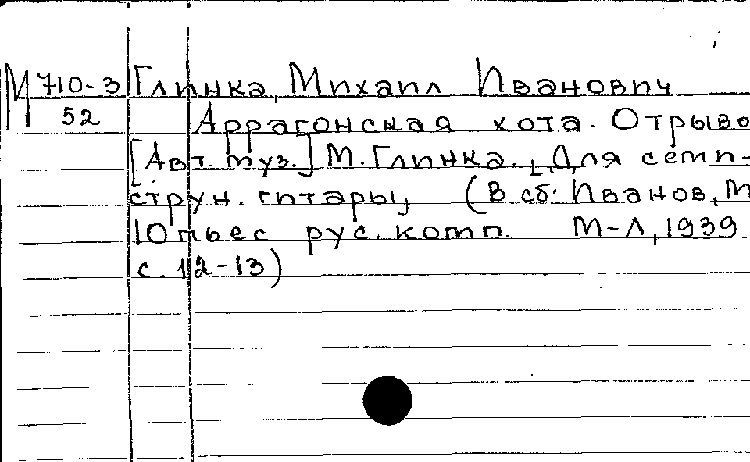 М 710-3 Глинка, Михаил Иванович
52 Аррагонская хота. Отрыво
[Авт. муз.] М. Глинка. [Для семи-
струн. гитары] (В сб: Иванов, М
10 пьес рус. комп. М-Л, 1939
с. 12-13)